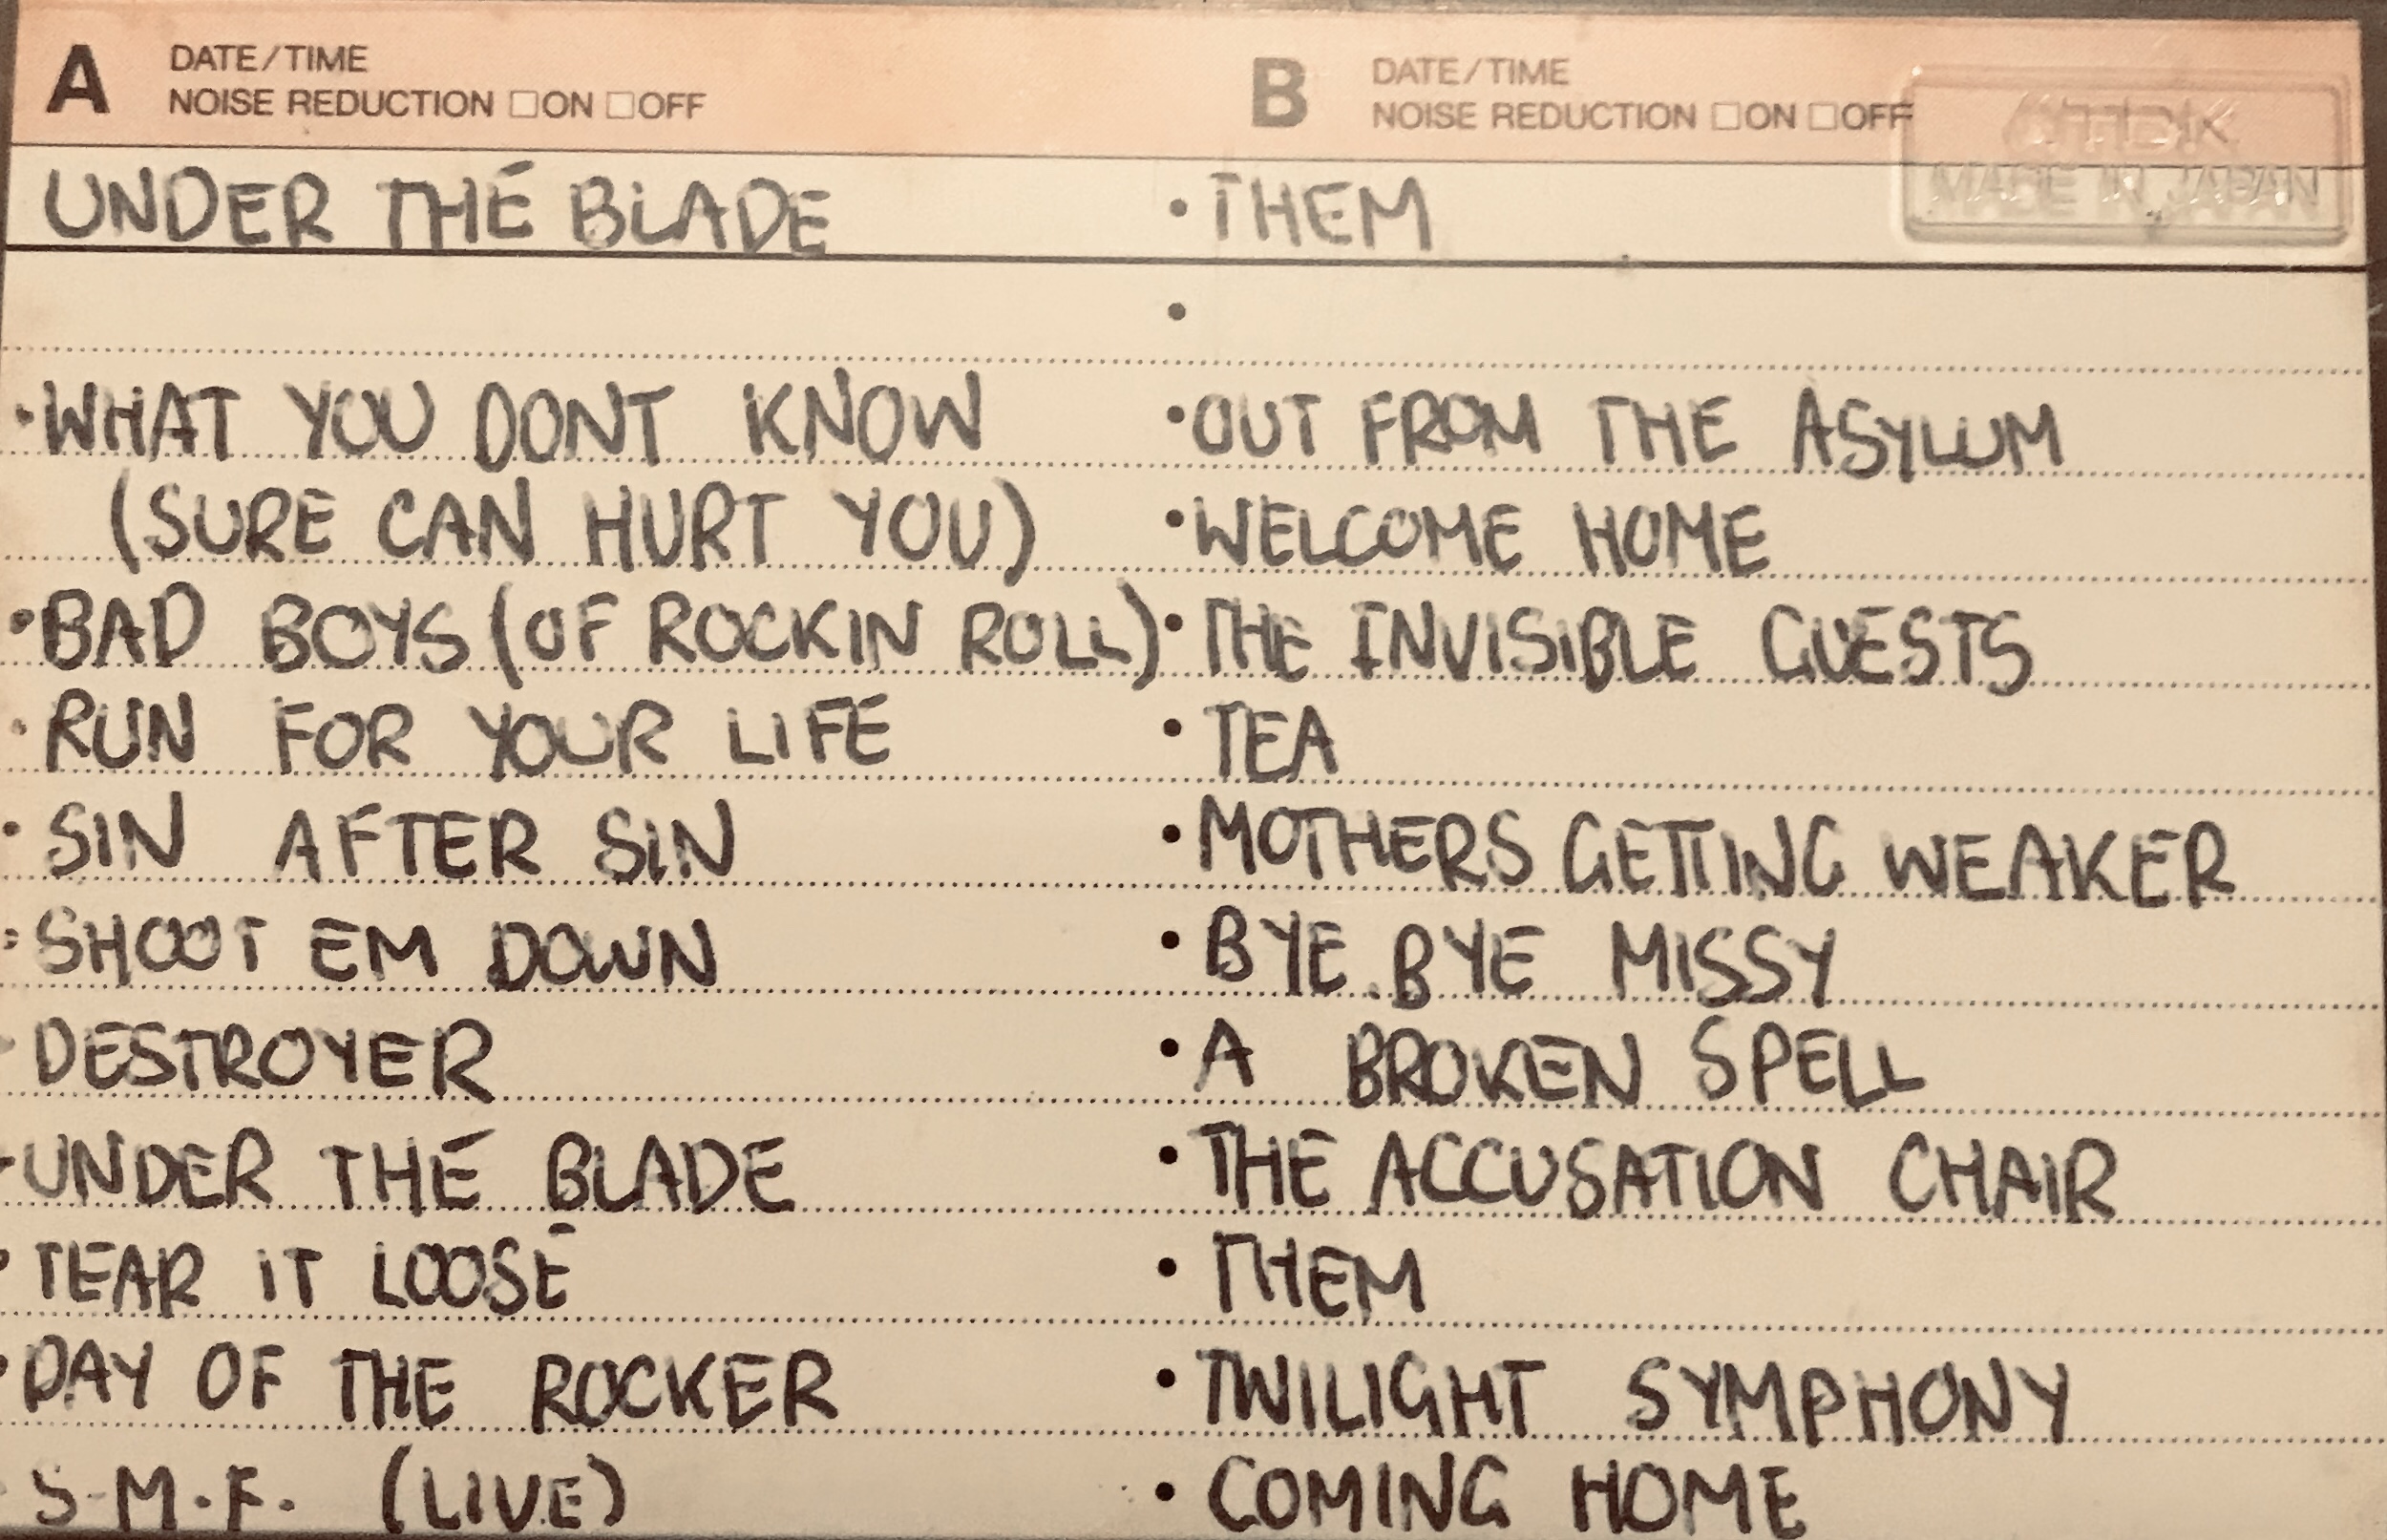 A DATE/TIME
NOISE REDUCTION □ON □OFF
UNDER THE BLADE
•WHAT YOU DONT KNOW
(SURE CAN HURT YOU)
•BAD BOYS (OF ROCKIN ROLL)
•RUN FOR YOUR LIFE
•SIN AFTER SIN
•SHOOT EM DOWN
DESTROYER
•UNDER THE BLADE
•TEAR IT LOOSE
•DAY OF THE ROCKER
S.M.F. (LIVE)
B DATE/TIME
NOISE REDUCTION □ON □OFF
TDK
MADE IN JAPAN
•THEM
•
•OUT FROM THE ASYLUM
•WELCOME HOME
•THE INVISIBLE GUESTS
•TEA
•MOTHERS GETTING WEAKER
•BYE.BYE MISSY
•A BROKEN SPELL
•THE ACCUSATION CHAIR
•THEM
•TWILIGHT SYMPHONY
•COMING HOME